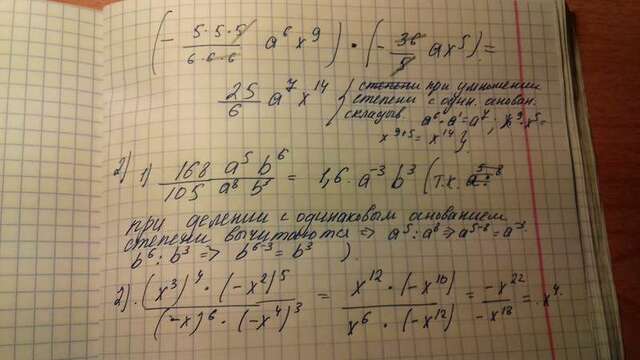 (- 5·5·5/6·6·6 a⁶x⁹) · (- 36/5 ax⁵) =
25/6 a⁷x¹⁴ { степени при умножении
степени с один. анован.
складыв. a⁶·a¹=a⁷; x⁹·x⁵=
x⁹⁺⁵=x¹⁴ }
2) 1) 168 a⁵b⁶ / 105 a⁸b³ = 1,6·a⁻³b³ (т.к.
при делении с одинаковым анованием
степени вычитаются ⇒ a⁵:a⁸⇒a⁵⁻⁸=a⁻³
b⁶:b³ ⇒ b⁶⁻³=b³ ).
2). (x³)⁴·(-x²)⁵ / (-x)⁶·(-x⁴)³ = x¹²·(-x¹⁰) / x⁶·(-x¹²) = -x²² / -x¹⁸ = x⁴